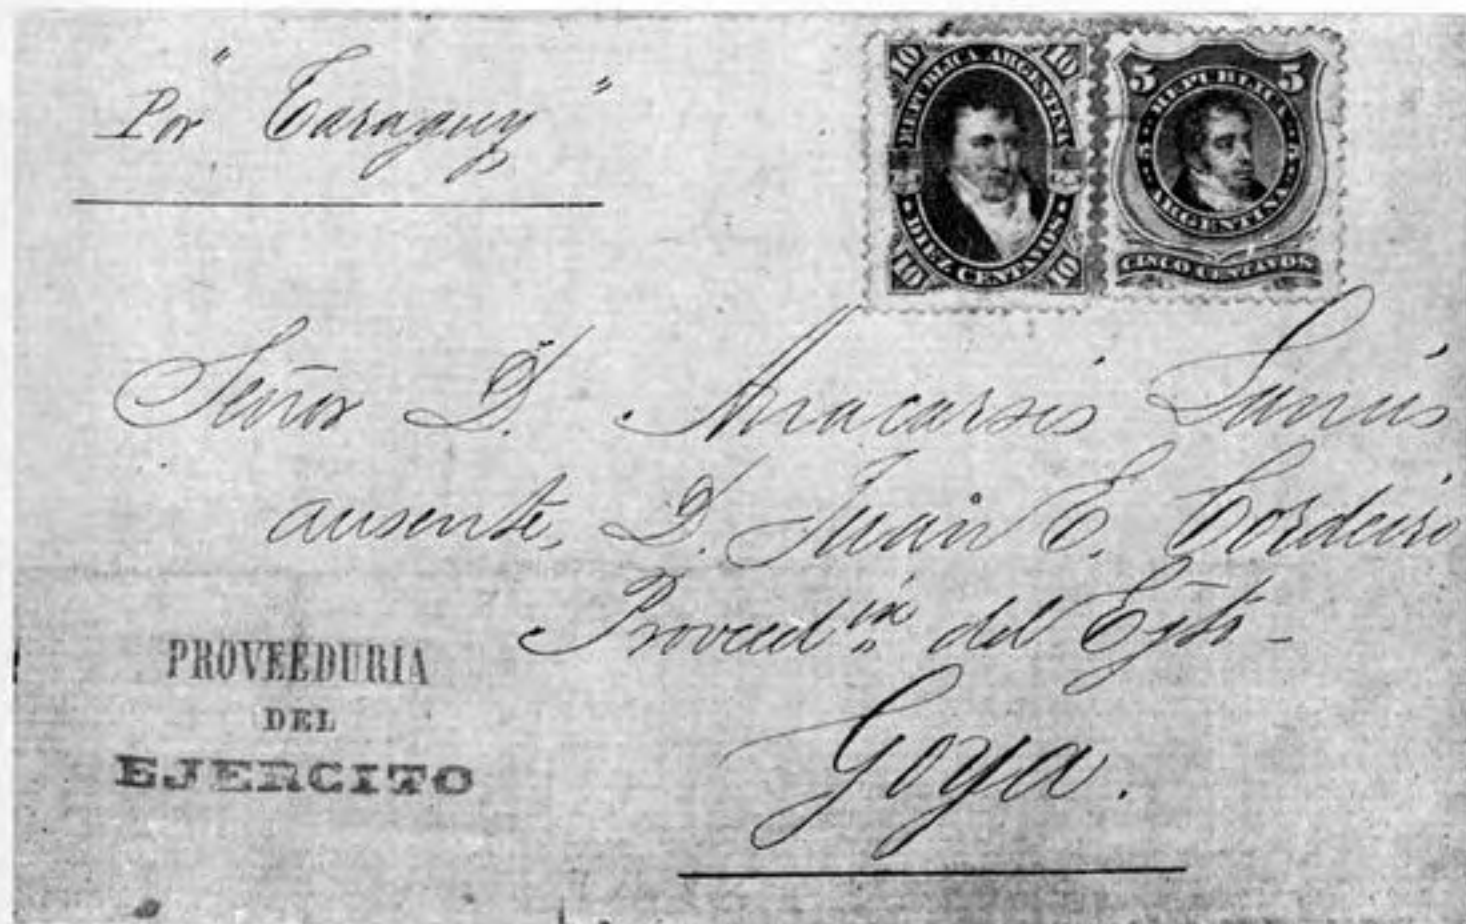 Por "Taraguy"
10 10
REPUBLICA ARGENTINA
DIEZ CENTAVOS
10 10
5 5
REPUBLICA
5 5
ARGENTINA
CINCO CENTAVOS
Señor D. Anacarsis Lanús
ausente, D. Juan E. Cordeiro
Proveedᵘⁱᵃ del Egto-
Goya.
PROVEEDURIA
DEL
EJERCITO